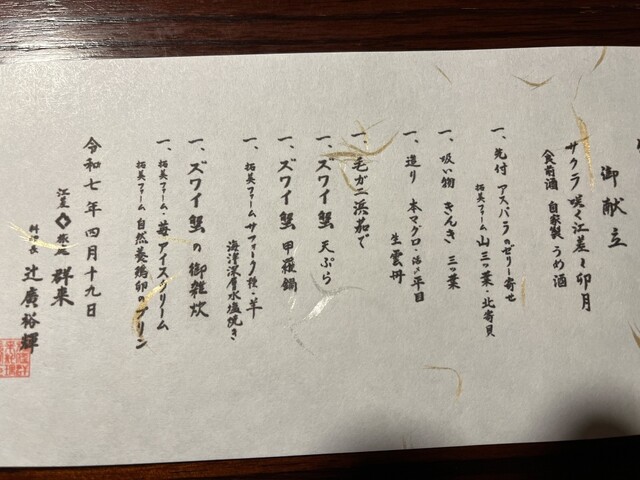 御献立
サクラ咲く江差と卯月
食前酒 自家製 うめ酒
一、先付 アスパラのゼリー寄せ
拓美ファーム 山三ッ葉・北寄貝
一、吸い物 きんき 三ッ葉
一、造り 本マグロ・活〆平目
生雲丹
一、毛ガニ浜茹で
一、ズワイ蟹 天ぷら
一、ズワイ蟹 甲羅鍋
一、拓美ファーム サフォーク種・羊
海洋深層水塩焼き
一、ズワイ蟹の御雑炊
一、拓美ファーム・苺アイスクリーム
拓美ファーム 自然養鶏卵のプリン
令和七年四月十九日
江差 旅庭 群来
料理長 辻廣裕輝